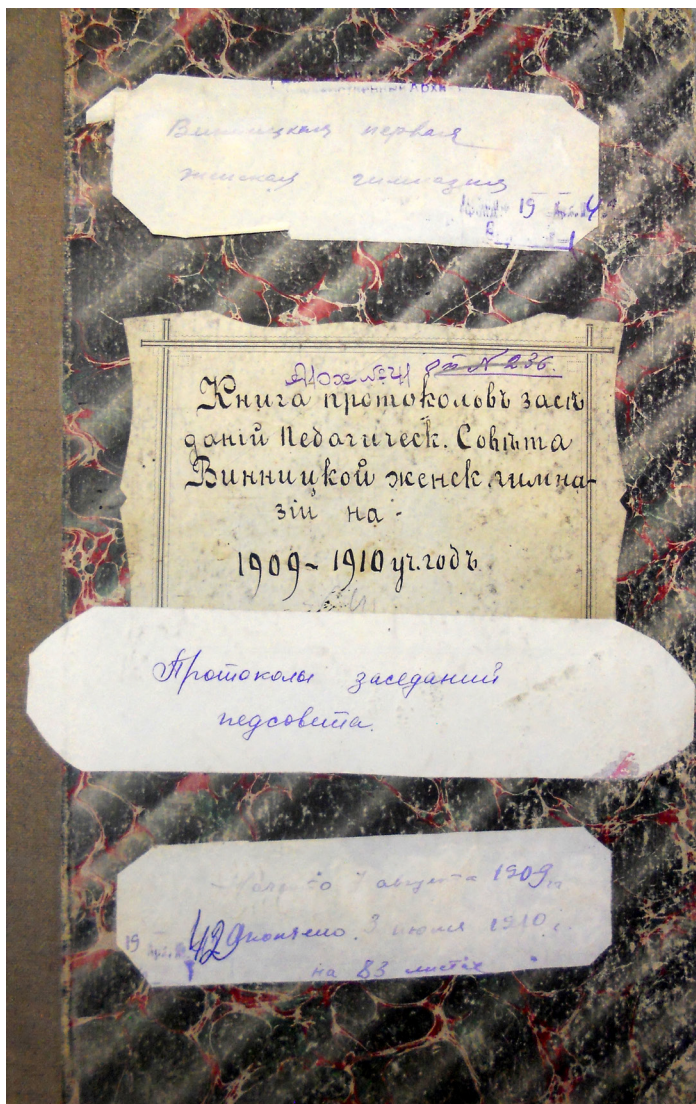 Винницкая первая
женская гимназия
19
Арх №41 № 236.
Книга протоколовъ засѣ
даній Педагическ. Совѣта
Винницкой женск. гимна-
зій на -
1909 - 1910 уч. годъ
Протоколы заседаний
педсовета.
Начато 7 августа 1909 г.
19 42 Окончено 3 июня 1910 г.
на 83 листах